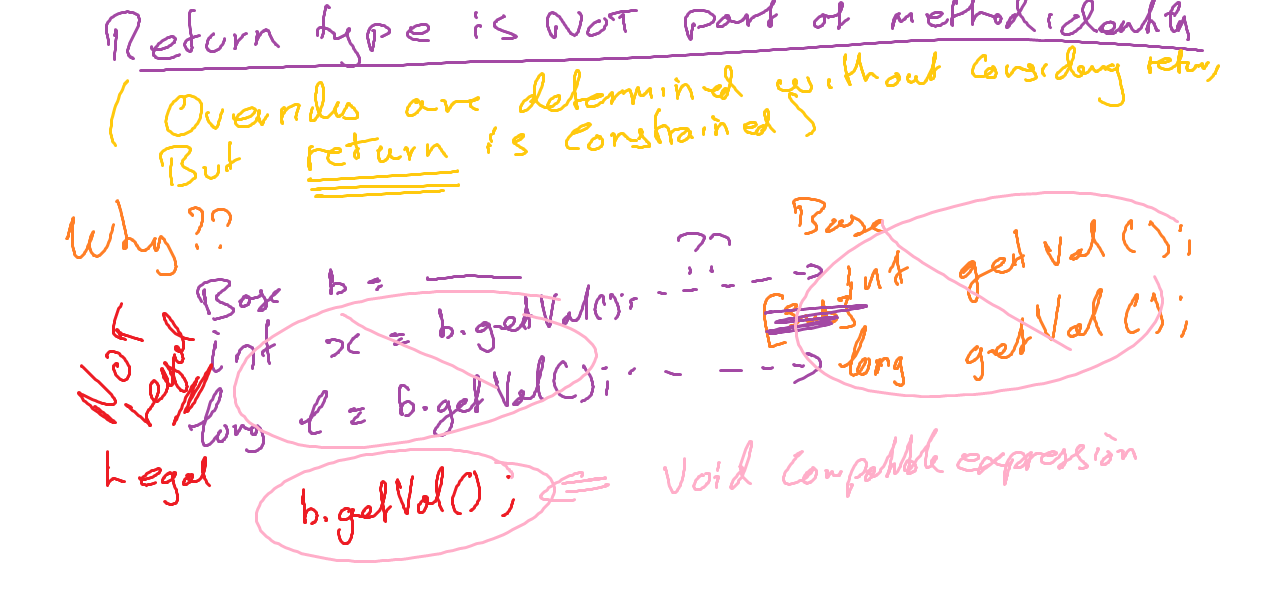 Return type is NOT part of method identity
( Overrides are determined without considering return,
But return is constrained )
Why ??
Base
??
int getVal();
Base b = ———
int x = b.getVal();
long getVal();
long l = b.getVal();
NOT
Legal
Legal
b.getVal();
Void Compatible expression